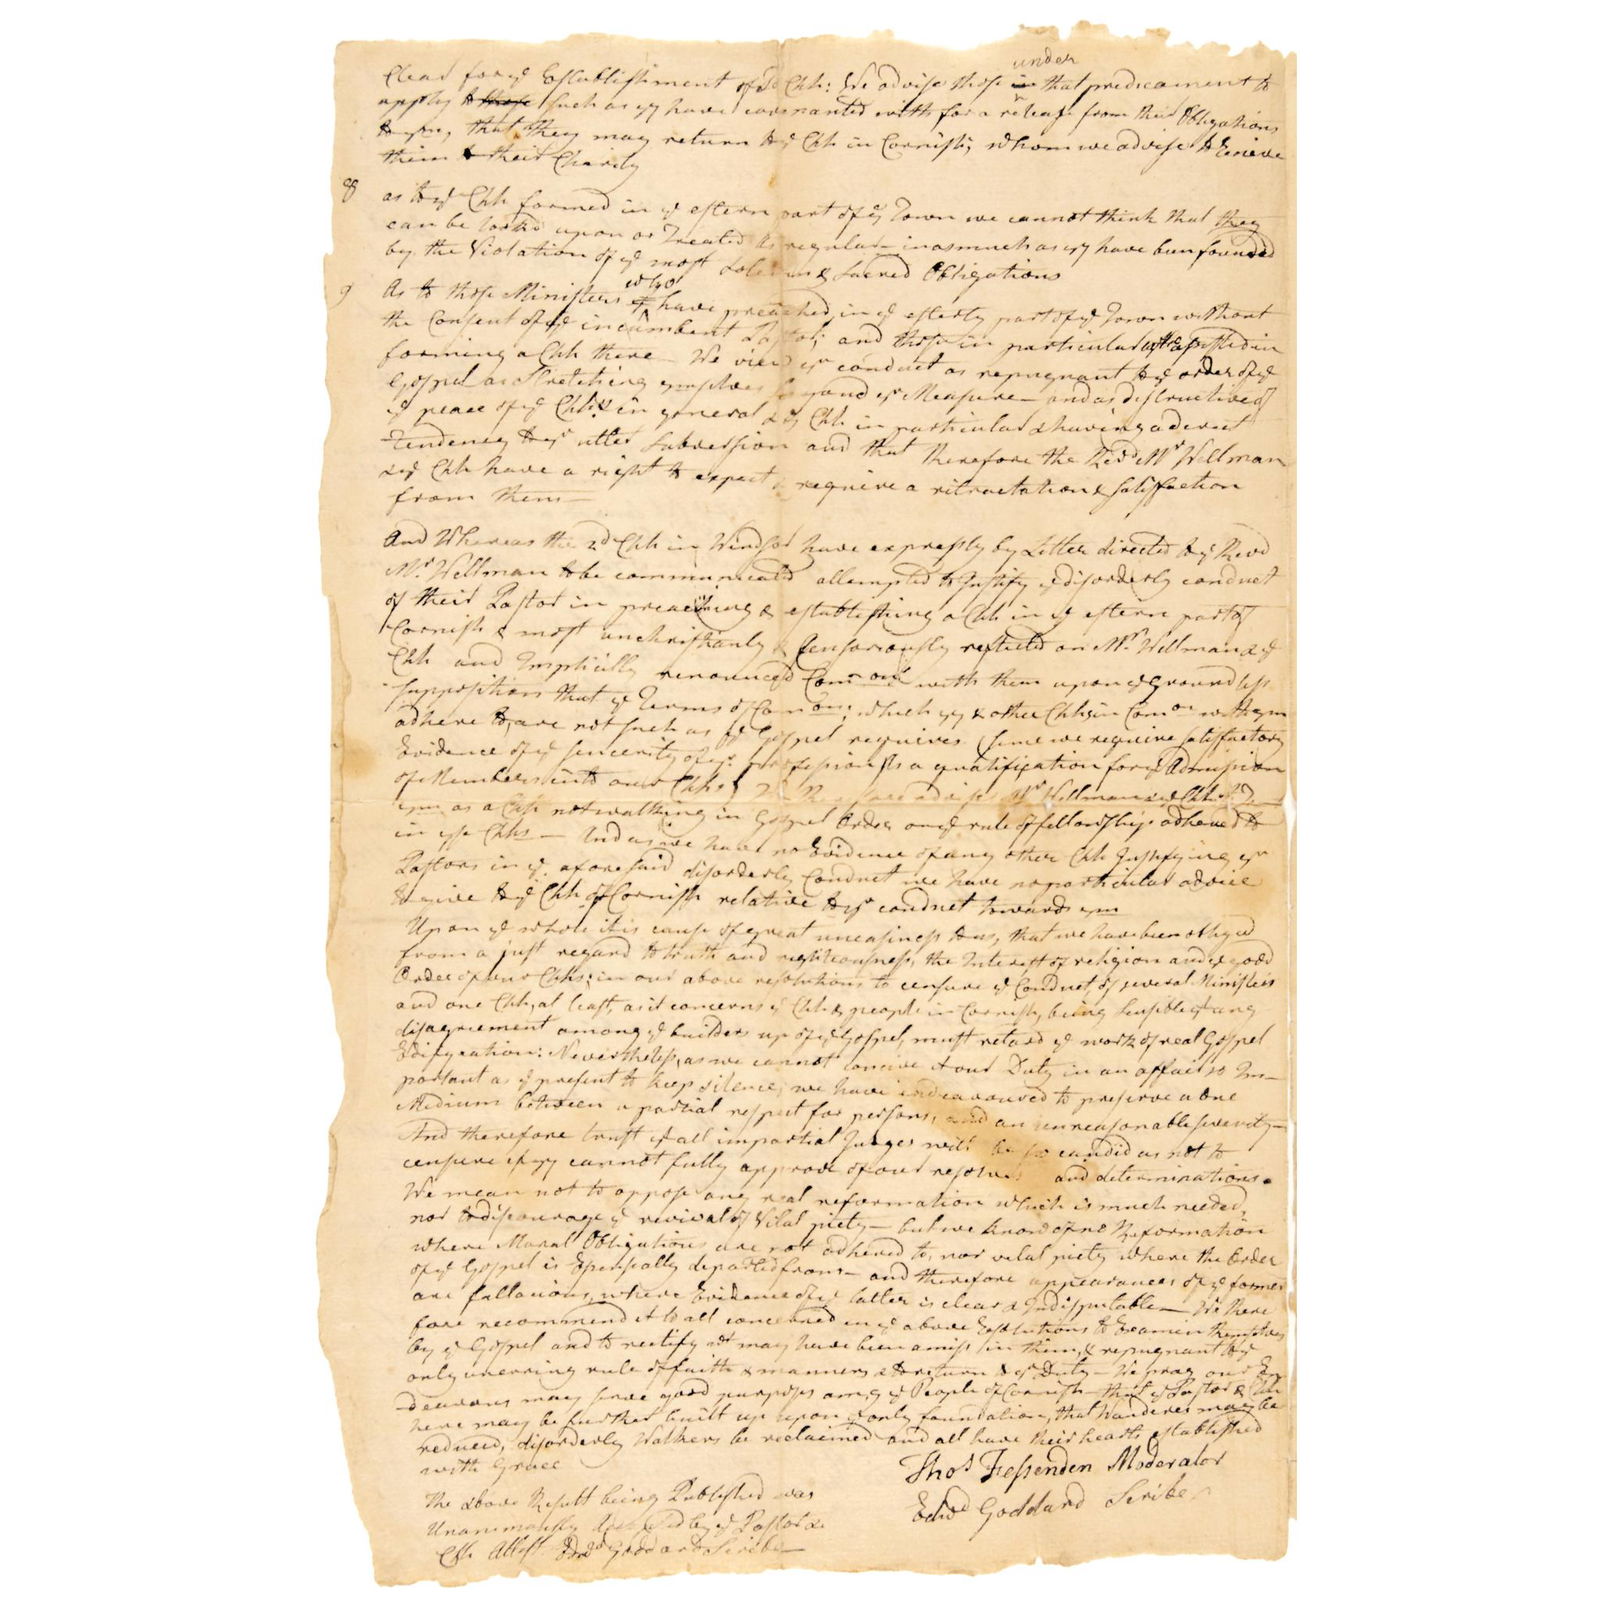 Clear for ye Establishment of sd Chh: We advise those under in that predicament to
apply to those such as yy have covenanted with for a releasf from their Obligations
to ym, that they may return to ye Chh in Cornish; whom we advise to receive
them to their Charity
8 as to ye Chh formed in ye estern part of ye Town we cannot think that they
can be look'd upon or Treated as regular inasmuch as yy have been founded
by the Violation of ye most Solemn & Sacred Obligations
9 As to those Ministers who have preached, in ye esterly part of ye Town without
the Consent of ye incumbent Pastor; and those in particular wo assisted in
forming a Chh there — We view yr conduct as repugnant to ye order of ye
Gospel as Stretching ymselves beyond yr Measure — and as distructive of
ye peace of ye Chhs in general & ys Chh in particular & having a direct
Tendency to yr utter Subversion and that therefore the Revd Mr Wellman
& ye Chh have a right to expect & require a retractation & satisffaction
from them —
And Whereas the 2d Chh in Windsor have expressly by Letter directed to ye Revd
Mr Wellman to be communicated attempted to Justify ye disorderly conduct
of their Pastor in preaching & establishing a Chh in ye estern part of
Cornish & most unchristianly & Censoriously reflected on Mr Wellman & ye
Chh and Implicitly renounced Comon with them upon ye Groundless
supposition that ye Terms of Comon; which yy & other Chhs in Comon with ym
adhere to, are not such as ye Gospel requires (since we require satisfactory
Evidence of ye sincerity of yr profession as a qualification for ye Admission
of Members into our Chhs) We advise Mr Wellman & ye Chh to
ym as a Chh not walking in Gospel Order on ye rule of fellowship adhered to
in yse Chhs — And as we have no Evidence of any other Chh Justifying yr
Pastors in ye aforesaid disorderly Conduct we have no particular advice
to give to ye Chh of Cornish relative to yr conduct towards ym
Upon ye whole it is cause of great uneasiness to us, that we have been obliged
from a just regard to truth and righteousness, the Interest of religion and ye good
Order of our Chhs; in our above resolutions to censure ye Conduct of several Ministers
and one Chh, at least, as it concerns ye Chh & people in Cornish, being sensible yt any
disagreement among ye builders up of ye Gospel, must retard ye work of real Gospel
Edification: Nevertheless, as we cannot conceive it our Duty in an affair so Im-
portant as ye present to keep silence, we have indeavoured to preserve a due
Medium between a partial respect for persons, and an unreasonable severity —
And therefore trust yt all impartial Judges will be so candid as not to
censure if yy cannot fully approve of our resolves and determinations.
We mean not to oppose any real reformation which is much needed,
nor to discourage ye revival of Vital piety — but we know of no Reformation
where Moral Obligations are not adhered to, nor vital piety where the Order
of ye Gospel is Espensally departed from — and therefore appearances of ye former
are fallacious, where Evidence of ye latter is clear & Indisputable — We there
fore recommend it to all concerned in ye above Resolutions to Examin themselves
by ye Gospel and to rectify wt may have been amiss in them, & repugnant to ye
only unerring rule of faith & manners & to return to yr Duty — We pray our En
deavours may serve good purposes among ye People of Cornish — that ye Pastor & Chh
here may be further built up upon ye only foundation, that Wanderers may be
reduced, disorderly Walkers be reclaimed and all have their hearts established
with Grace
Thos Fessenden Moderator
Edwd Goddard Scribe
The above Result being Published was
Unanimously Accepted by ye Pastor &
Chh Attest Edwd Goddard Scribe —